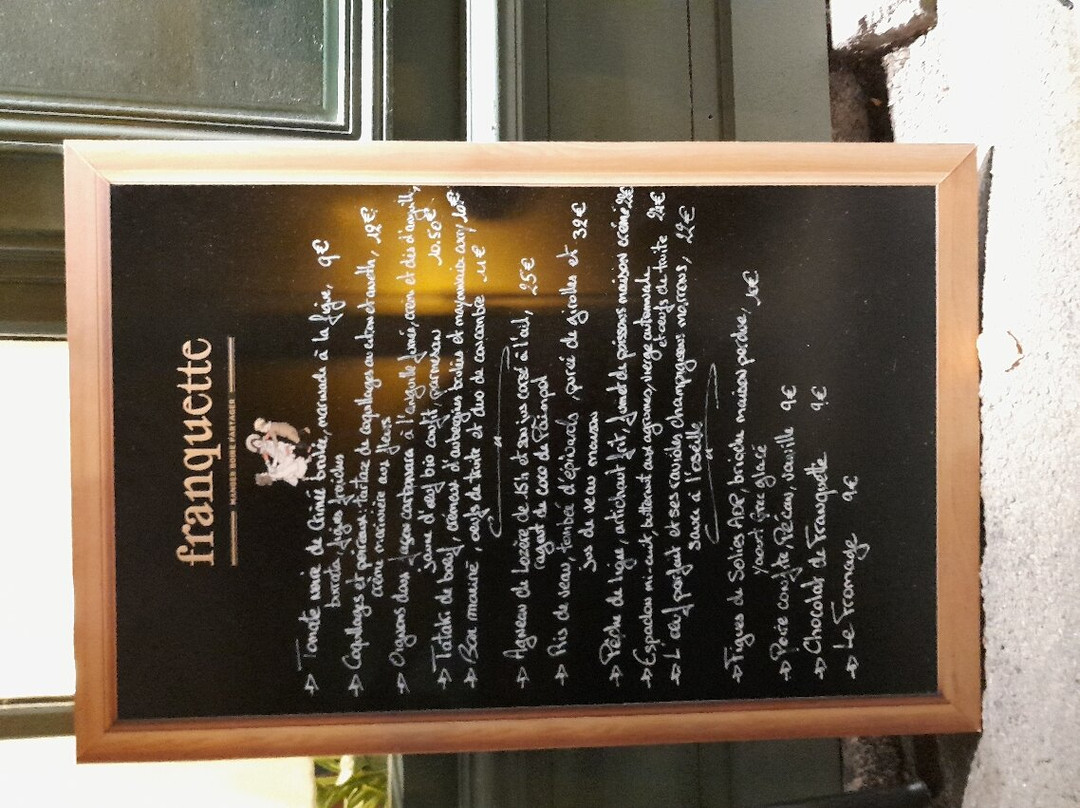 franquette
MANGER BOIRE PARTAGER
→ Tomate noire de Crimée, marinade à la figue, 9€
burrata, figes froides
→ Coquillages et poireaux, tartare de coquillages au citron et aneth, 12€
crème marinière aux fleurs
→ Oignons doux façon carbonara à l'anguille fumée, et dés d'anguille,
jaune d'oeuf bio confit, parmesan 10.50€
→ Tataki de boeuf, crémeux d'aubergines brulées et mayonnaise curry, 10€
→ Bar mariné, oeufs de truite et duo de concombre 11€
→ Agneau de Lozère de 15h et son jus corsé à l'ail, 25€
ragout de coco de Paimpol
→ Ris de veau, tombée d'épinards, purée de girolles et 32€
jus de veau maison
→ Pêche de ligne, artichaut frit, fumet de poissons maison crémé
→ Espadon mi-cuit, beurre aux agrumes, verge automnale
et oeufs de truite 24€
→ L'oeuf parfait et ses ravioles champignons marrons, 22€
sauce à l'oseille
→ Figues de Solies AOP, brioche maison perdue, 10€
yaourt grec glacé
→ Poire confite, Pécan, vanille 9€
→ Chocolat de Franquette 9€
→ Le Fromage 9€